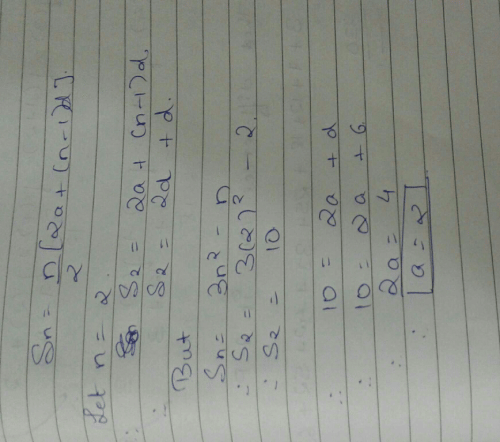 Sn = n[2a + (n-1)d].
2
Let n = 2.
S2 = 2a + (n-1)d
S2 = 2d + d.
But
Sn = 3n² - n
∴ S2 = 3(2)² - 2.
∴ S2 = 10
∴ 10 = 2a + d
∴ 10 = 2a + 6
∴ 2a = 4
∴ [a = 2]